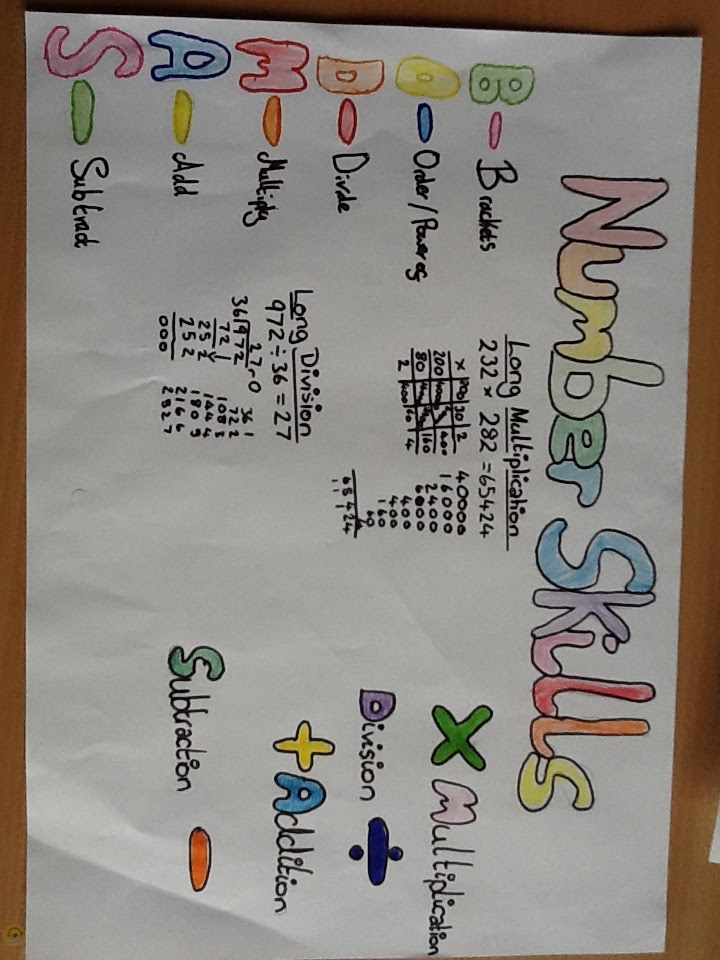 Number Skills
B - Brackets
O - Order/Power of
D - Divide
M - Multiply
A - Add
S - Subtract
Long Multiplication
232 × 282 = 65424
× 200 30 2
200
80 160
2 4
40000
16000
2400
6000
400
400
160
60
65424
11 1
Long Division
972 ÷ 36 = 27
27.0
36 972
72
252
252
000
36 1
72 2
108 3
144 4
180 5
216 6
252 7
× Multiplication
Division ÷
+ Addition
Subtraction -